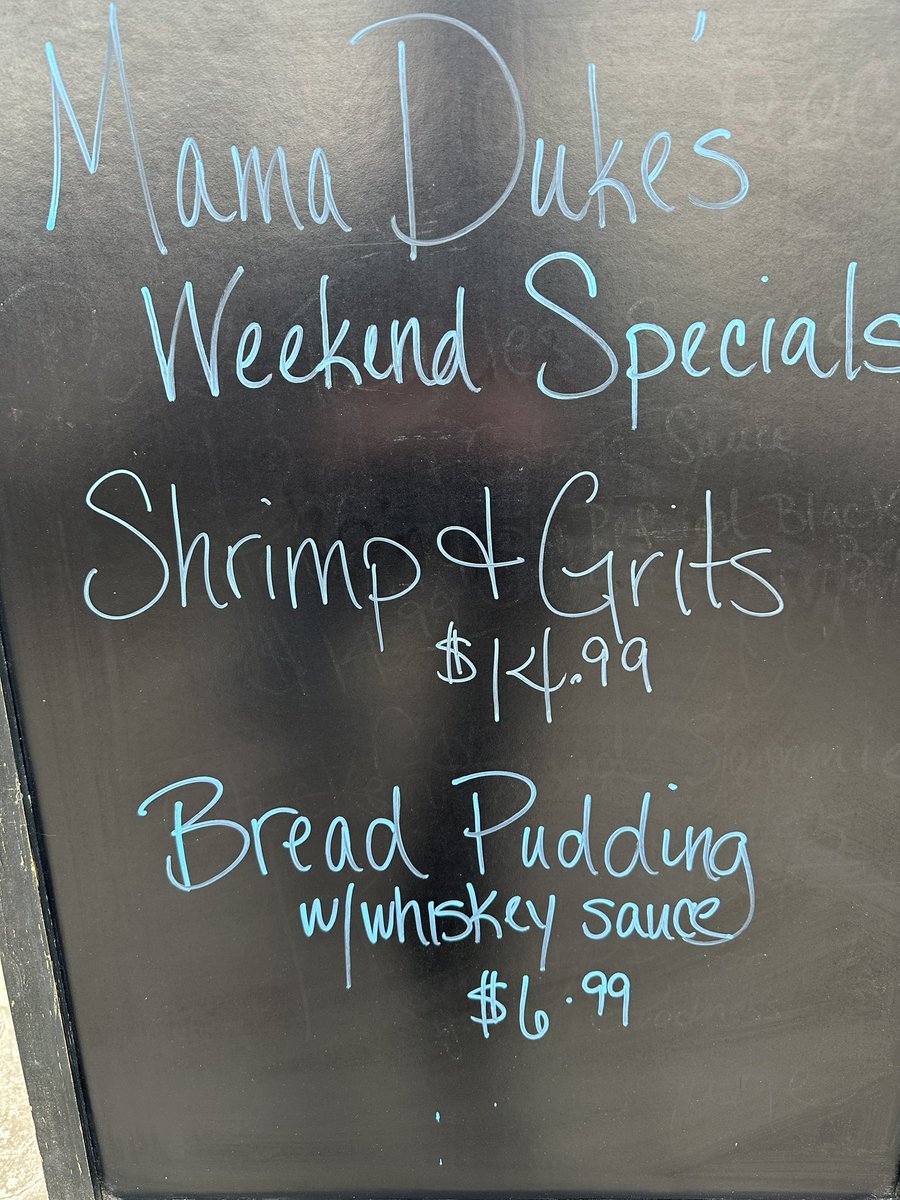 Mama Duke's
Weekend Specials
Shrimp & Grits
$14.99
Bread Pudding
w/whiskey sauce
$6.99